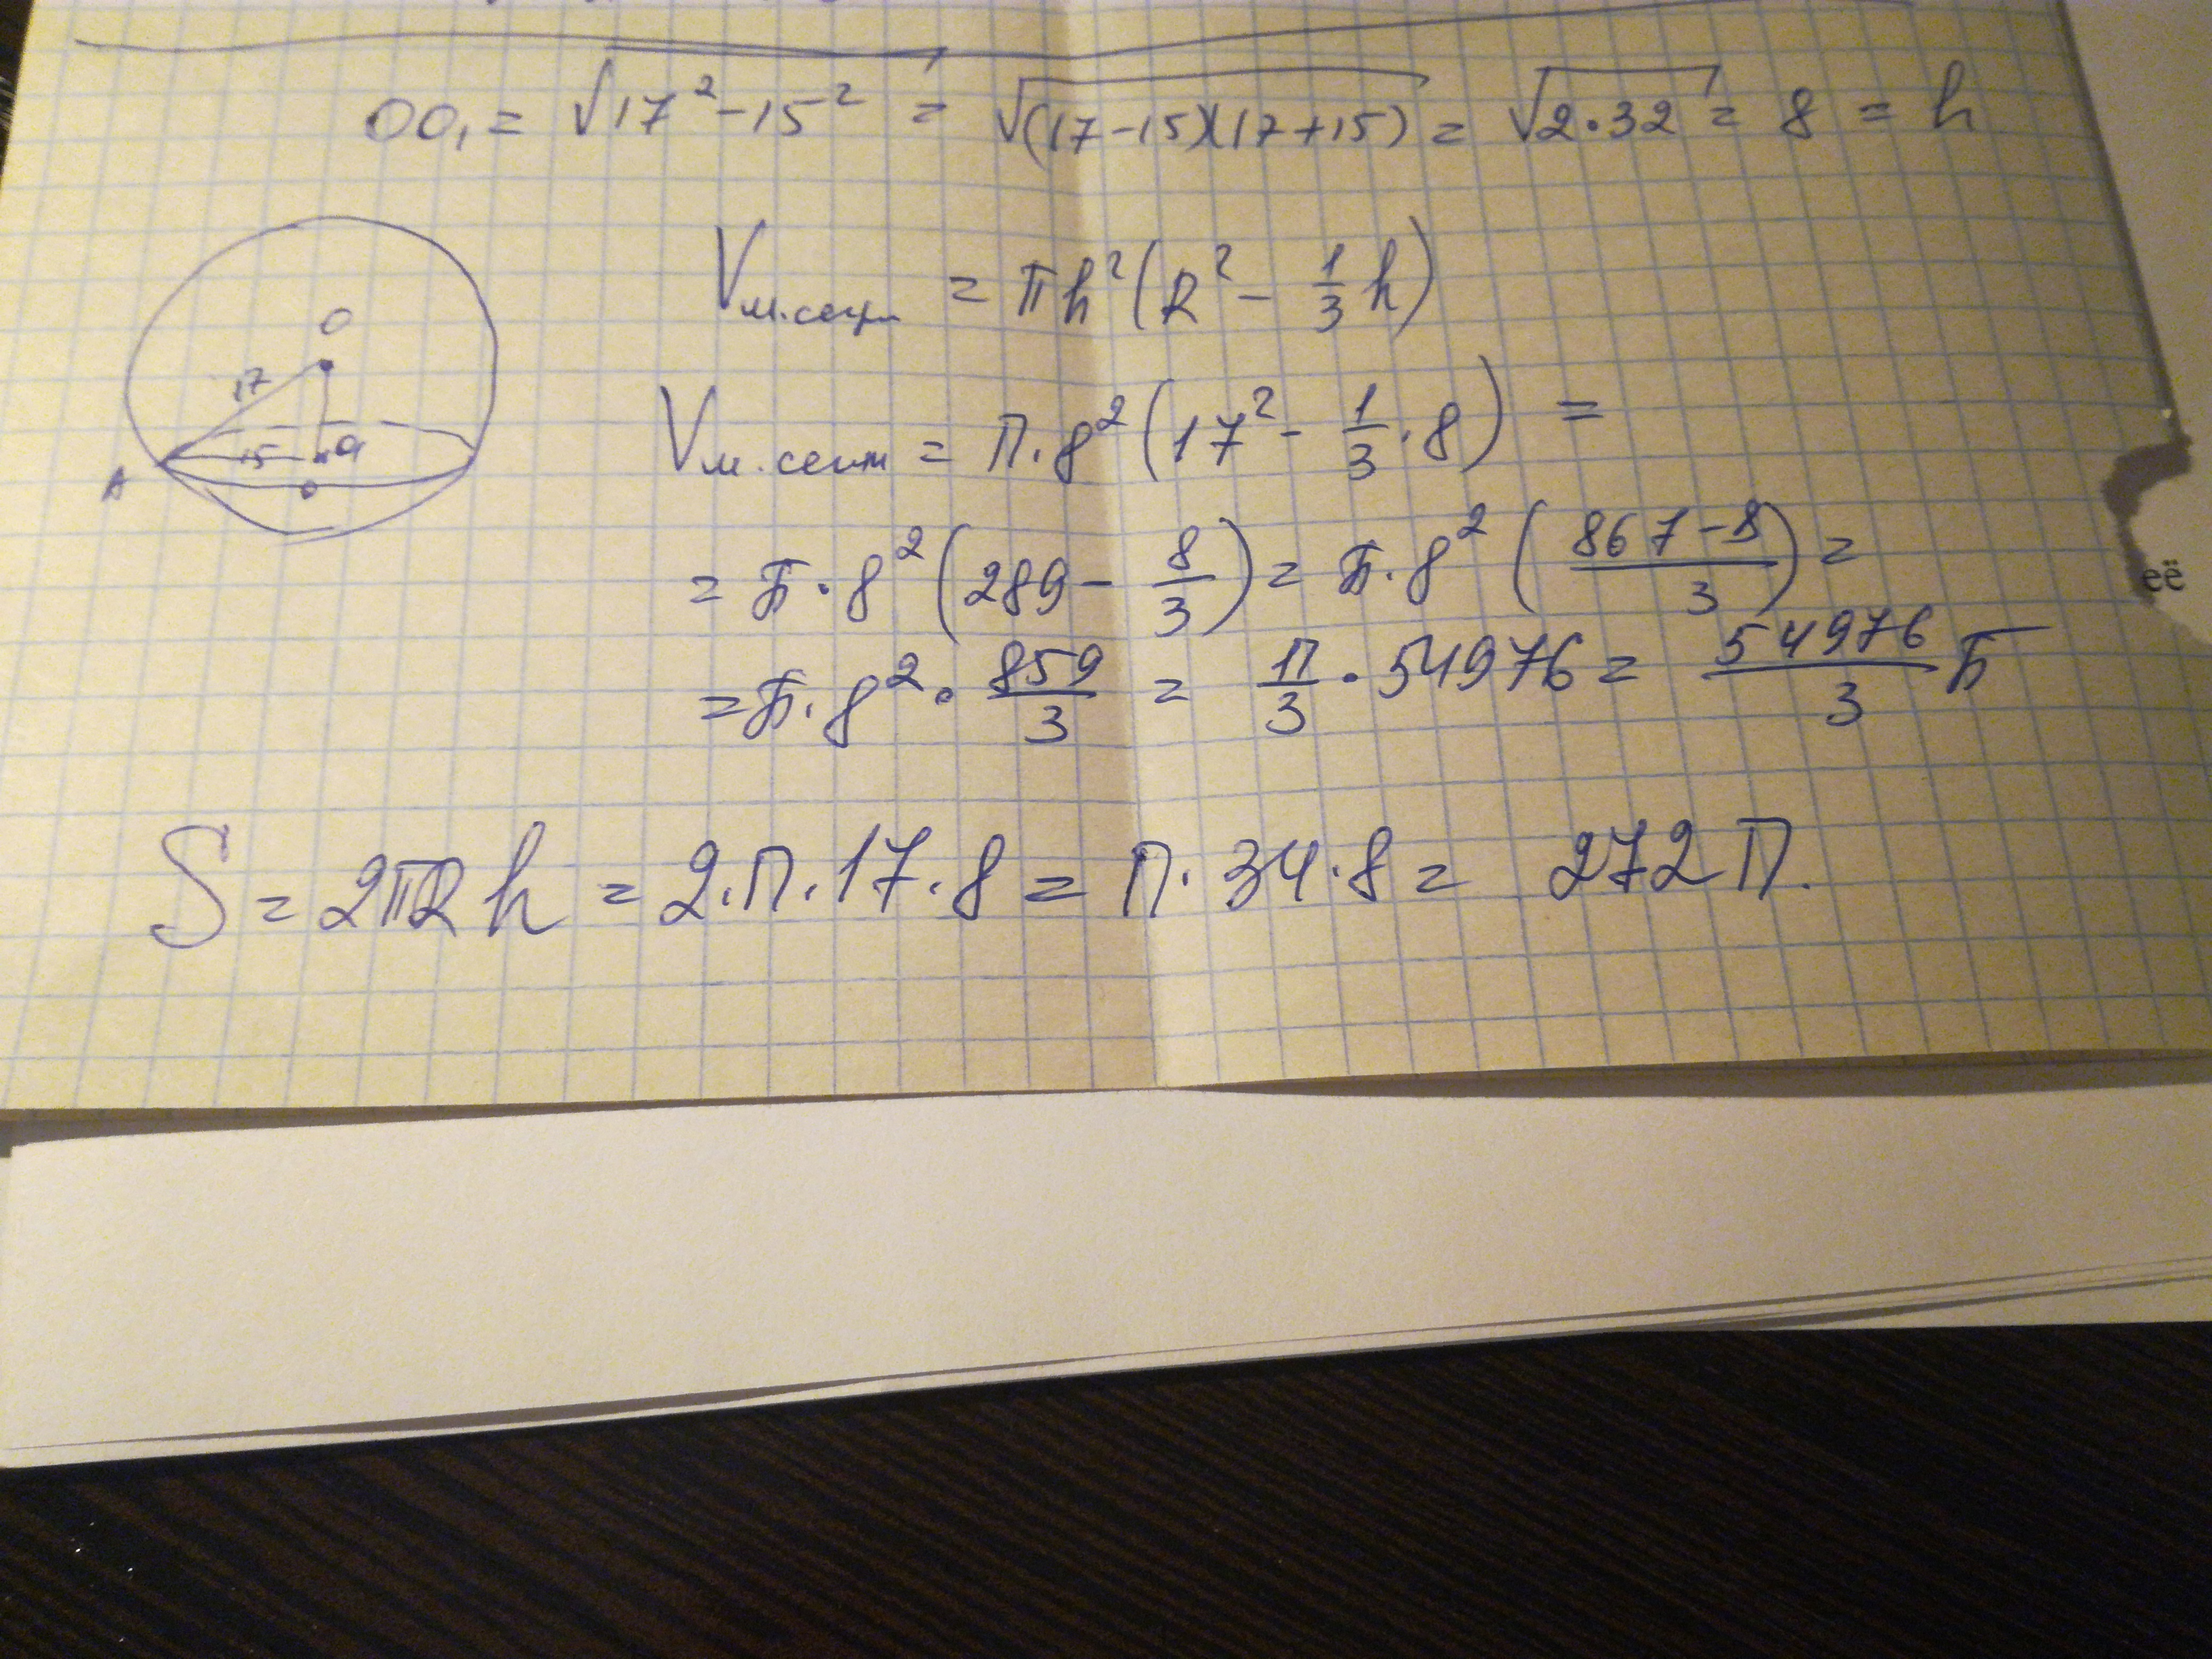 OO₁ = √17² - 15² = √(17-15)(17+15) = √2·32 = 8 = h
O
17
15
O₁
A
V м.сегм = πh²(R² - 1/3 h)
V м.сегм = П·8²(17² - 1/3·8) =
= π·8²(289 - 8/3) = π·8²(867-8/3) =
= π·8²·859/3 = П/3·54976 = 54976/3 π
S = 2πRh = 2·П·17·8 = П·34·8 = 272П.
её